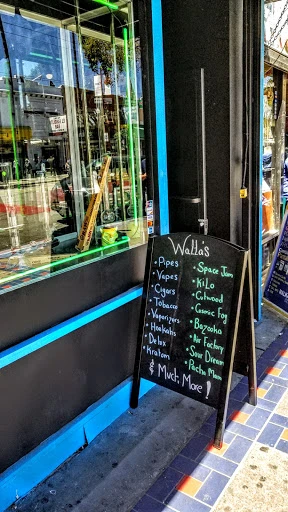 Walla's
• Pipes
• Vapes
• Cigars
• Tobacco
• Vaporizers
• Hookahs
• Detox
• Kratom
• Space Jam
• KiLo
• Cutwood
• Cosmic Fog
• Bazooka
• Air Factory
• Sour Dream
• Pacha Mama
& Much, More!